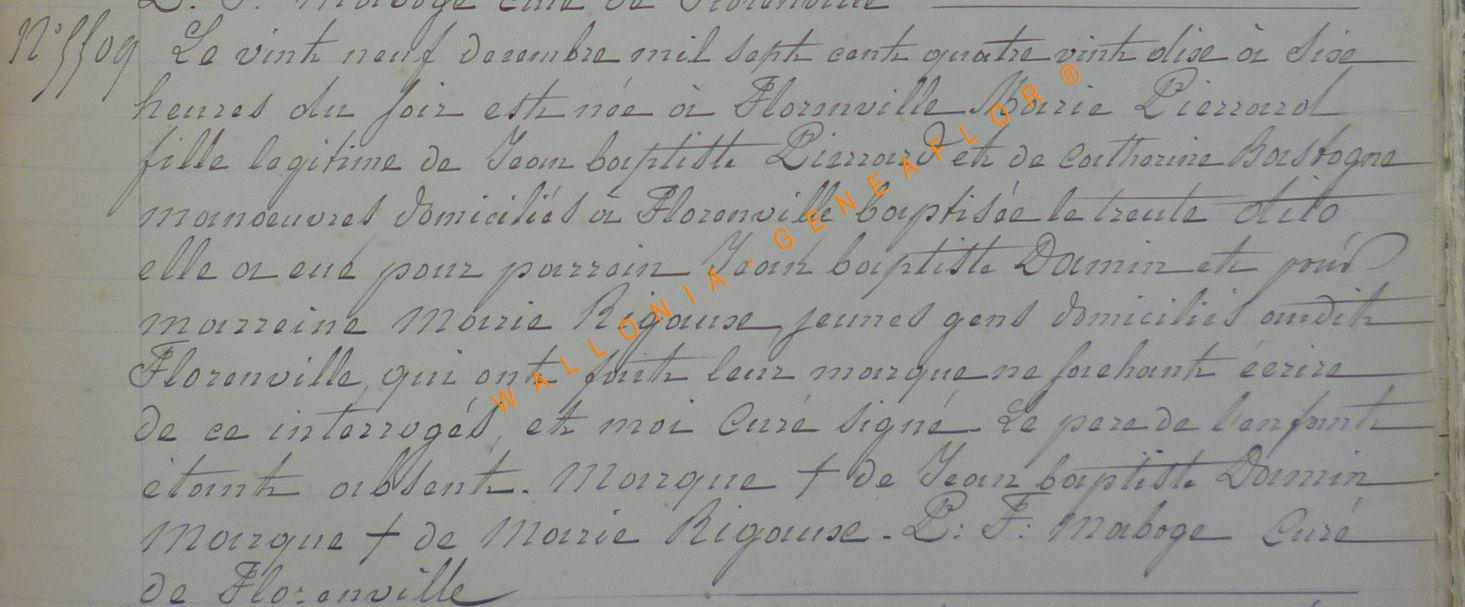 L. F. Maboge curé de Florenville
N° 5509 Le vint neuf decembre mil sept cent quatre vint dix à six
heures du soir est née à Florenville Marie Pierrard
fille legitime de Jean baptiste Pierrard et de catherine Bastogne
manoeuvres domiciliés à Florenville baptisée le trente dito
elle a eue pour parrain Jean baptiste Damin et pour
marreine Marie Rigaux, jeunes gens domiciliés audit
Florenville, qui ont fait leur marque ne sachant écrire
de ce interrogés, et moi Curé signé. Le pere de l'enfant
étant absent. Marque + de Jean baptiste Damin
Marque + de Marie Rigaux. L: F: Maboge Curé
de Florenville
WALLONIA - GENEAFLOR ®